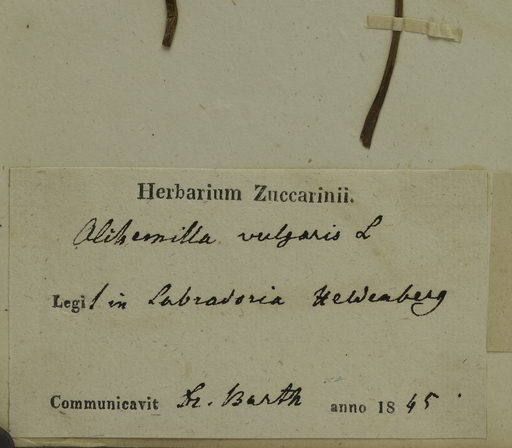 Herbarium Zuccarinii.
Alchemilla vulgaris L
Legit in Labradoria Heldenberg
Communicavit Dr. Barth anno 1845.